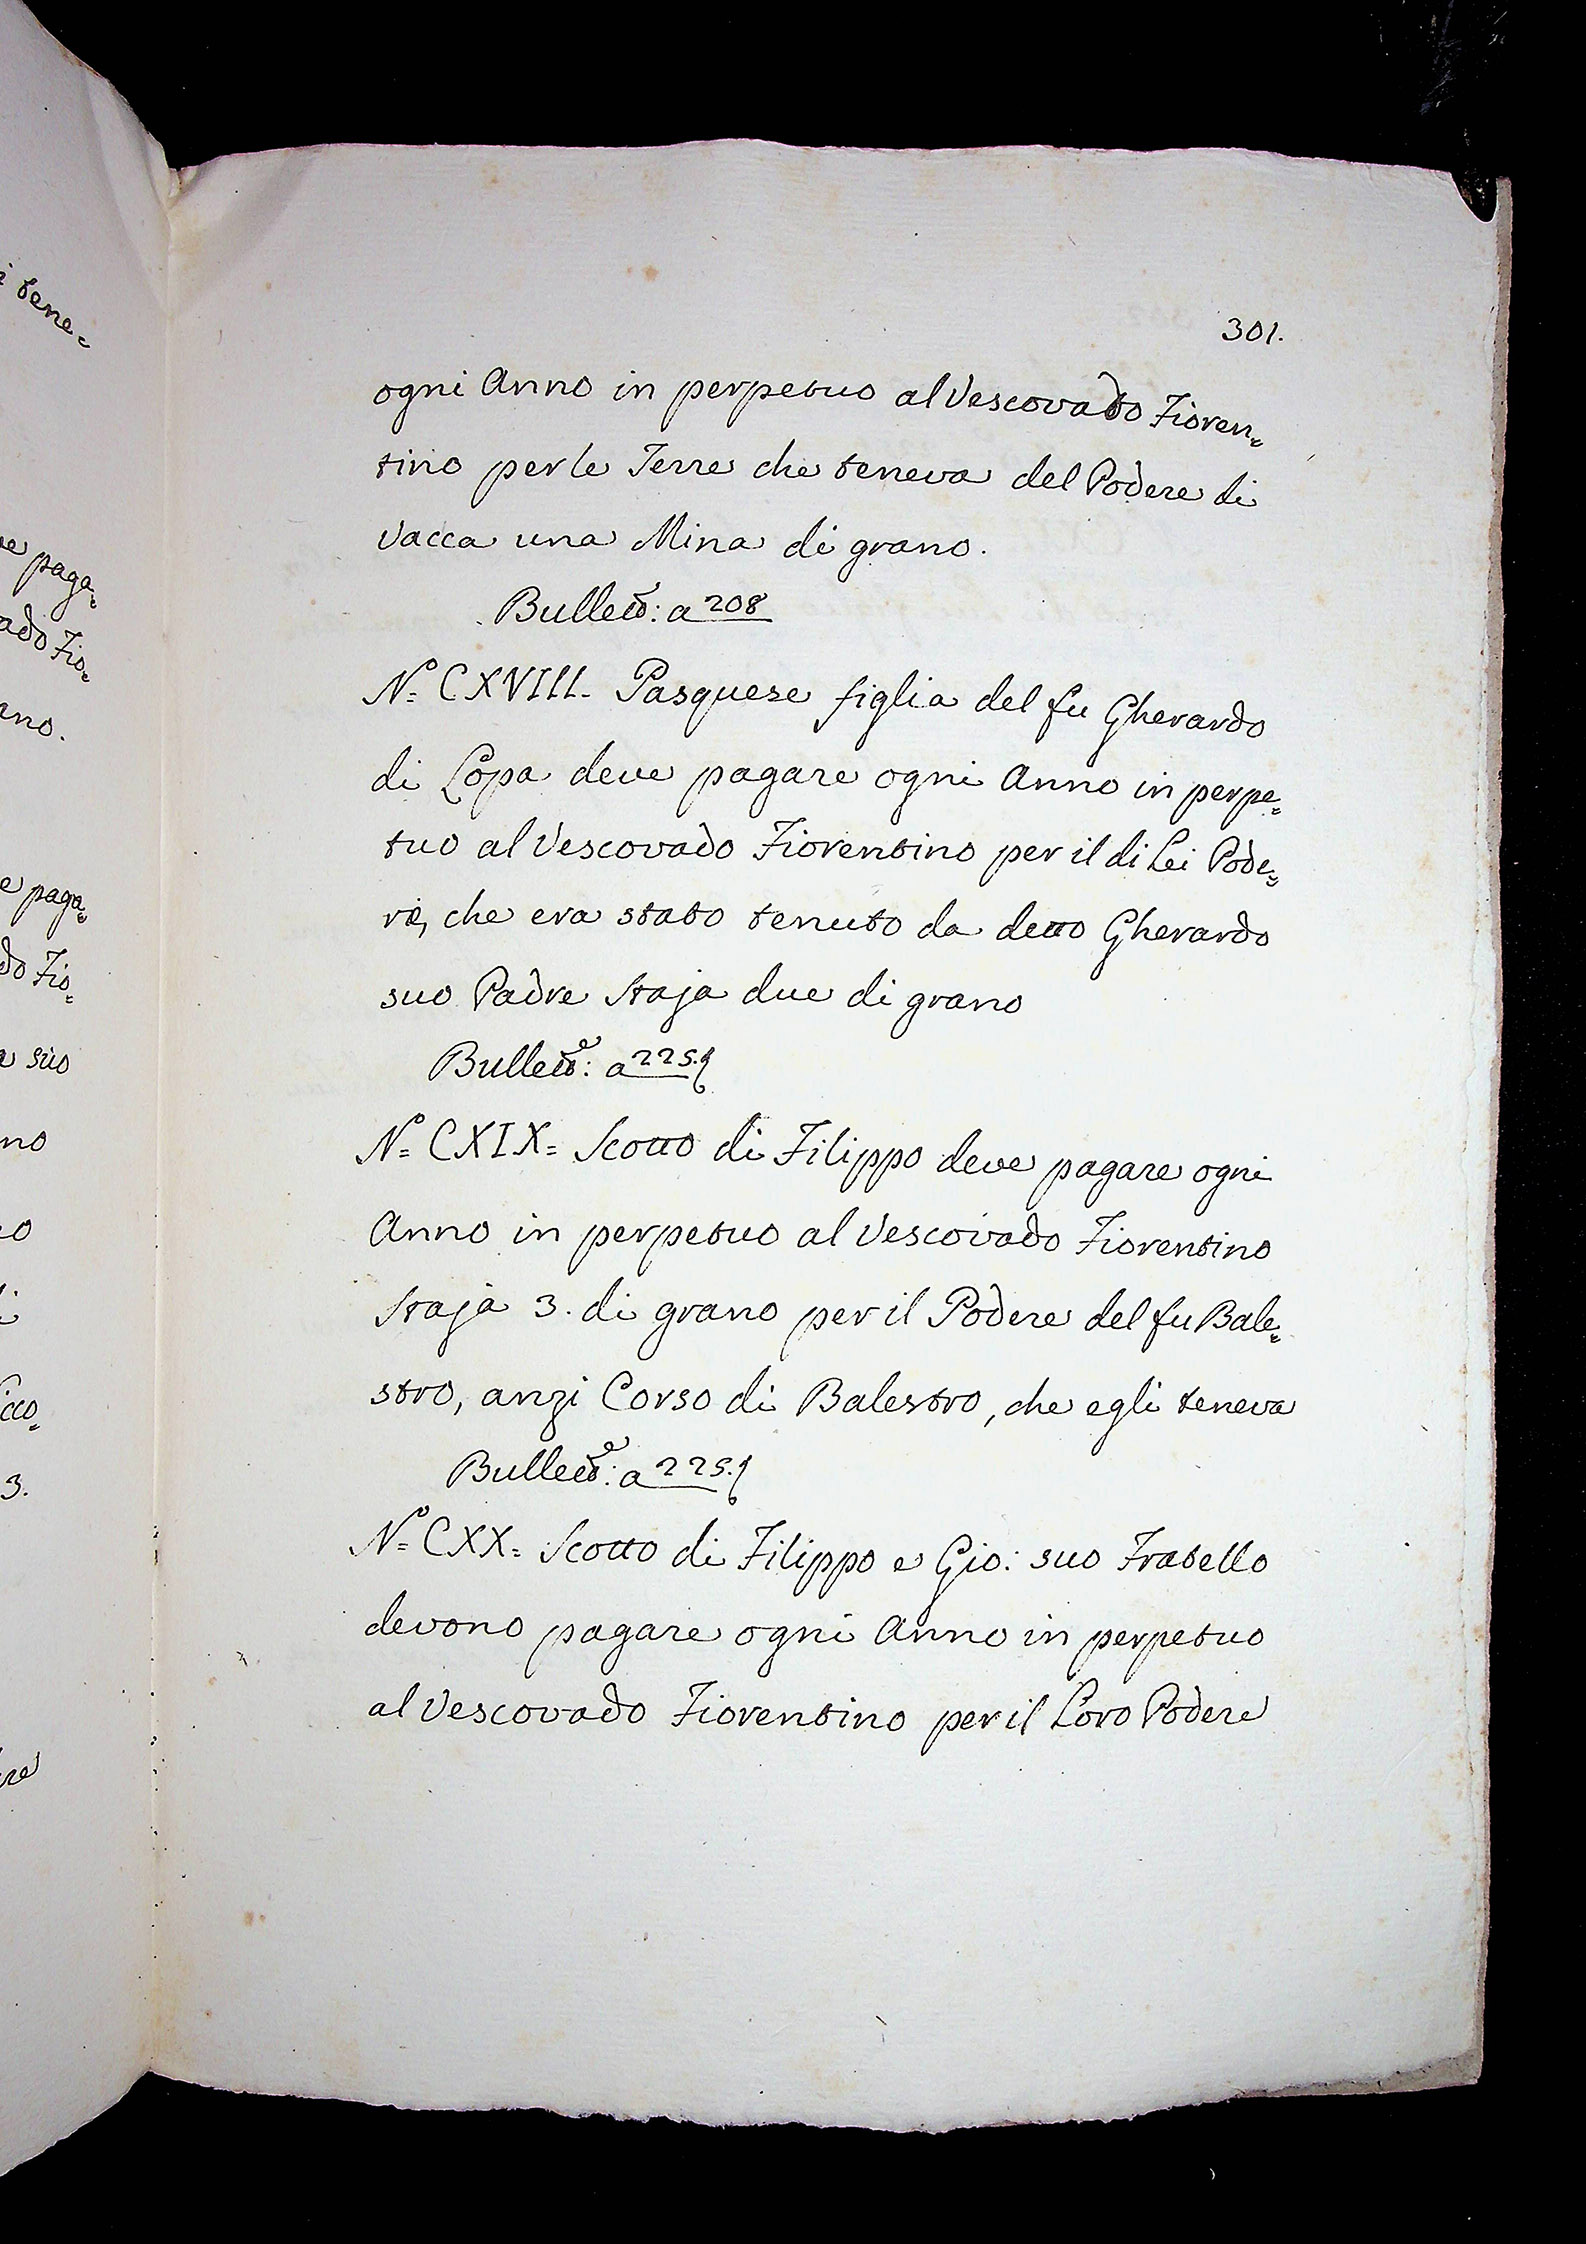 i tene=
ve paga=
ado Fio=
ano.
e paga=
do Fio=
a suo
no
3.
301.
ogni Anno in perpetuo al Vescovado Fioren=
tino per le Terre che teneva del Podere di
Vacca una Mina di grano.
Bullett.e: a 208
N.o= CXVIII. Pasquese figlia del fu Gherardo
di Lopa deve pagare ogni Anno in perpe=
tuo al Vescovado Fiorentino per il di Lei Pode=
re, che era stato tenuto da detto Gherardo
suo Padre Staja due di grano
Bullett.e: a 225.
N.o= CXIX= Scotto di Filippo deve pagare ogni
Anno in perpetuo al Vescovado Fiorentino
Staja 3. di grano per il Podere del fu Bale=
stro, anzi Corso di Balestro, che egli teneva
Bullett.e: a 225.
N.o= CXX= Scotto di Filippo e Gio: suo Fratello
devono pagare ogni Anno in perpetuo
al Vescovado Fiorentino per il Loro Podere